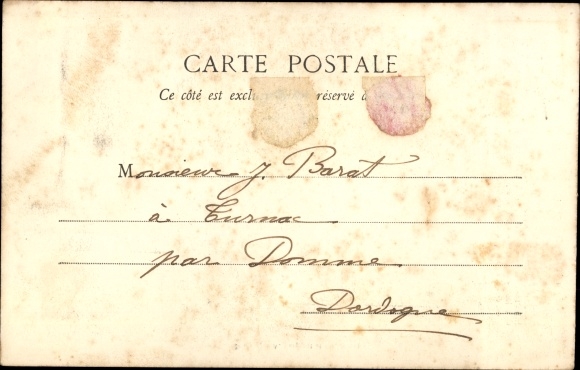 CARTE POSTALE
Ce côté est excl réservé à
Monsieur J. Barat
à Turnac
par Domme
Dordogne